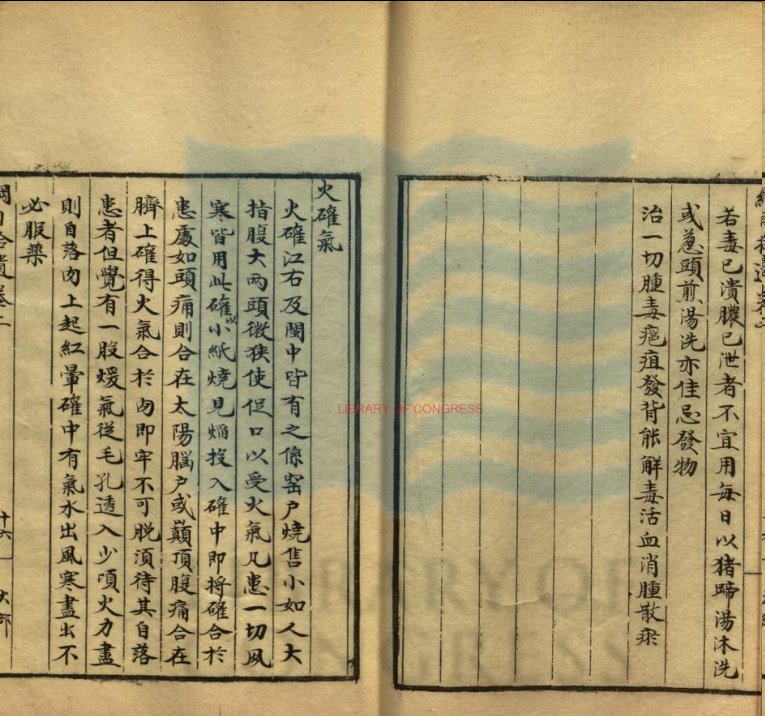 若毒已潰膿已泄者不宜用每日以猪蹄湯沐洗
或蔥頭煎湯洗亦佳忌發物
治一切腫毒癰疽發背能解毒活血消腫散瘀
火確氣
火確江右及閩中皆有之係窑户燒售小如人大
指腹大两頭微狹使促口以受火氣凡患一切风
寒皆用此確以小紙燒見焰投入確中即将確合於
患處如頭痛則合在太陽脳户或巔頂腹痛合在
臍上確得火氣合於肉即牢不可脱須待其自落
患者但覺有一股煖氣從毛孔透入少頃火力盡
則自落肉上起紅暈確中有氣水出風寒盡出不
必服藥
綱目拾遺卷二
十六
火部
LIBRARY OF CONGRESS